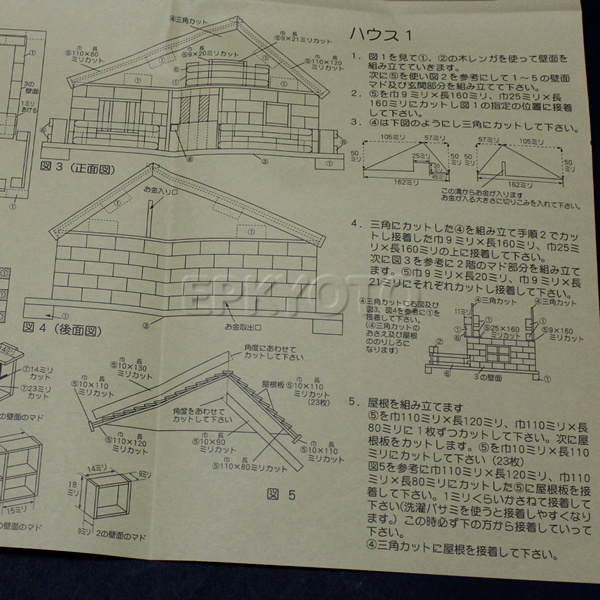 ハウス1
1. 図1を見て①、②の木レンガを使って壁面を
組み立てていきます。
次に⑤を使い図2を参考にして1～5の壁面
マド及び玄関部分を組み立てて下さい。
2. ⑤を巾9ミリ×長160ミリ、巾25ミリ×長
160ミリにカットし図1の指定の位置に接着
して下さい。
3. ④は下図のようにし三角にカットして下さい。
105ミリ 57ミリ 57ミリ 105ミリ
50ミリ 25ミリ 50ミリ 50ミリ
162ミリ 45ミリ 162ミリ
この溝からお金が入ります
お金が入る大きさに切りこみを入れて下さい。
4. 三角にカットした④を組み立て手順2でカッ
トし接着した巾9ミリ×長160ミリ、巾25ミ
リ×長160ミリの上に接着して下さい。
次に図3を参考に2階のマド部分を組み立て
ます。⑤巾9ミリ×長20ミリ、巾9ミリ×長
21ミリにそれぞれカットし接着して下さい。
④三角カットに右図及び
図3、図4を参考に①を
接着して下さい。
(④三角カットの
おさえ及び屋根
ののりしろに
なります)
④三角カット ④三角カット
11ミリ
⑤25×160
ミリカット
⑤9×160
ミリカット
3の壁面
5. 屋根を組み立てます
⑤を巾110ミリ×長120ミリ、巾110ミリ×長
80ミリに1枚ずつカットして下さい。次に屋
根板をカットします。⑤を巾10ミリ×長110
ミリにカットして下さい(23枚)
図5を参考に巾110ミリ×長120ミリ、巾110
ミリ×長80ミリにカットした⑤に屋根板を接
着して下さい。1ミリくらいかさねて接着して
下さい(洗濯バサミを使うと接着しやすくなり
ます。)この時必ず下の方から接着していって
下さい。
④三角カットに屋根を接着して下さい。
④三角カット
巾 長
⑤110×80
ミリカット
巾 長
⑤9×20ミリカット
巾 長
⑤9×21ミリカット
巾 長
⑤110×120
ミリカット
3の壁面
1ミリ
あける
図3(正面図)
お金入り口
図4(後面図)
お金取出口
角度にあわせて
カットして下さい
巾 長
⑤10×110
ミリカット
巾 長
⑤10×130
ミリカット
屋根板
巾 長
⑤10×110
ミリカット
(23枚)
角度をあわせて
カットして下さい
巾 長
⑤110×120
ミリカット
巾 長
⑤10×90
ミリカット
巾 長
⑤110×80ミリカット
図5
⑦14ミリ
カット
⑦23ミリ
カット
の壁面のマド
14ミリ
9ミリ
18
ミリ
9ミリ
2の壁面のマド
15ミリ
の壁面のマド
EPKYOT